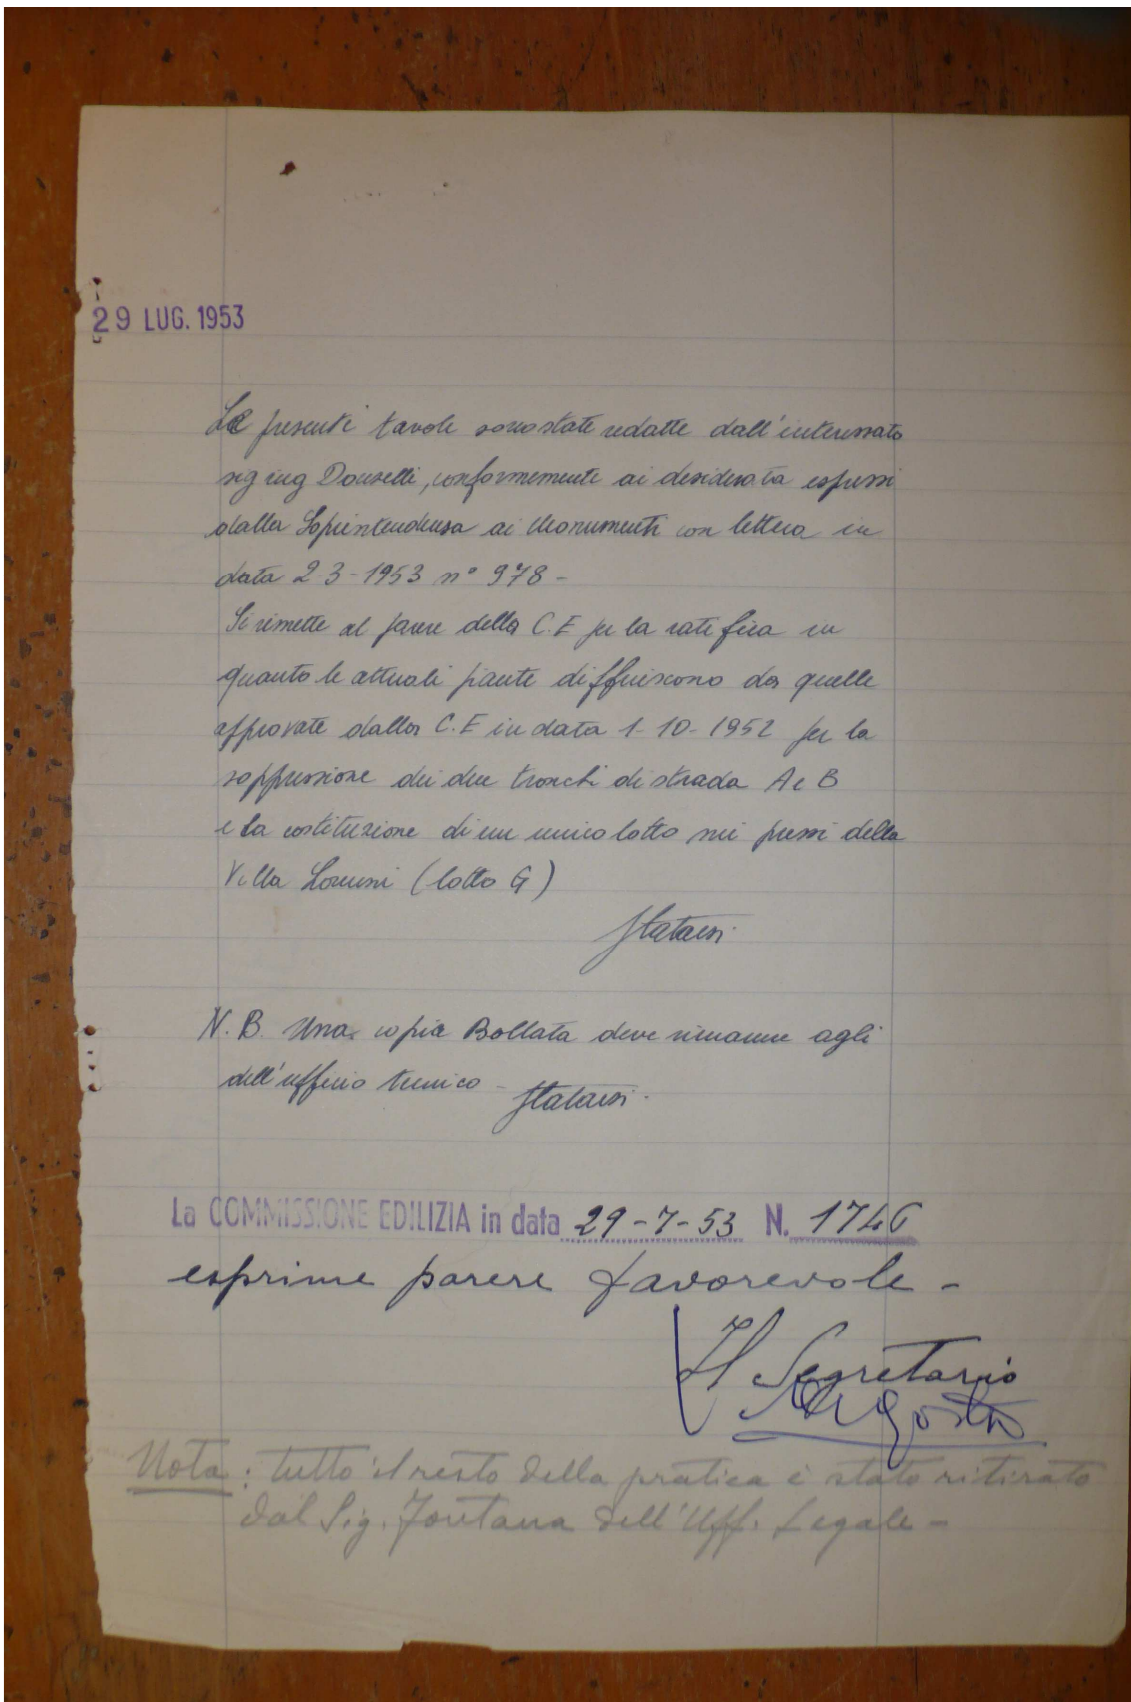 29 LUG. 1953
Le presenti tavole sono state redatte dall'interessato
sig ing Donzelli, conformemente ai desiderata espressi
dalla Soprintendenza ai Monumenti con lettera in
data 2 3-1953 n° 978-
Si rimette al parere della C.E per la ratifica in
quanto le attuali piante differiscono da quelle
approvate dalla C.E in data 1-10-1952 per la
soppressione dei due tronchi di strada A e B
e la costituzione di un unico lotto nei pressi della
Villa (lotto G)
N.B. Una copia Bollata deve rimanere agli
dell'ufficio tecnico -
La COMMISSIONE EDILIZIA in data 29-7-53 N. 1746
esprime parere favorevole -
Il Segretario
Nota: tutto il resto della pratica è stato ritirato
dal Sig. Fontana dell'Uff. Legale -